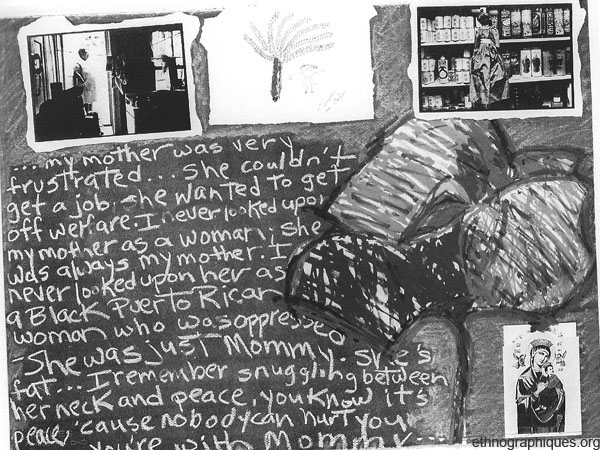 ...my mother was very
frustrated... she couldn't
get a job, she wanted to get
off welfare. I never looked upon
my mother as a woman; she
was always my mother. I
never looked upon her as
a Black Puerto Rican
woman who was oppressed
- She was just Mommy. She's
fat... I remember snuggling between
her neck and peace, you know it's
peace, 'cause nobody can hurt you
you're with Mommy...
ethnographiques.org